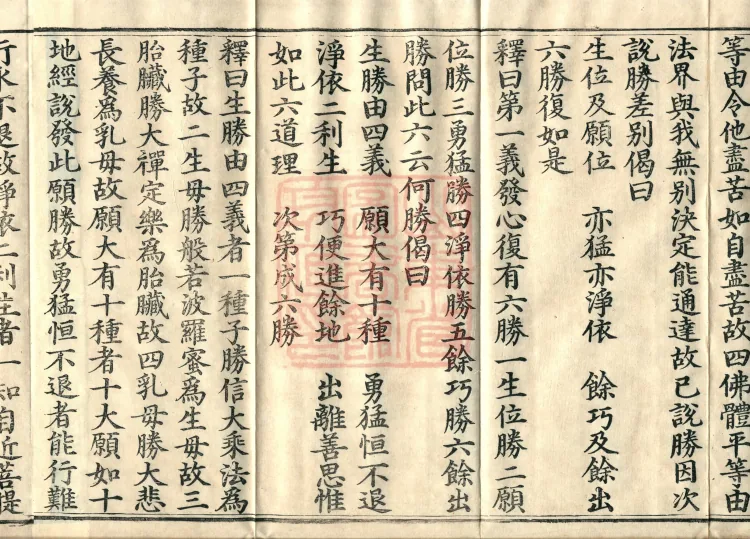 等由令他盡苦如自盡苦故四佛體平等由
法界與我無別決定能通達故已說勝因次
說勝差別偈曰
生位及願位　亦猛亦淨依　餘巧及餘出
六勝復如是
釋曰第一義發心復有六勝一生位勝二願
位勝三勇猛勝四淨依勝五餘巧勝六餘出
勝問此六云何勝偈曰
生勝由四義　願大有十種　勇猛恒不退
淨依二利生　巧便進餘地　出離善思惟
如此六道理　次第成六勝
釋曰生勝由四義者一種子勝信大乘法為
種子故二生母勝般若波羅蜜為生母故三
胎臟勝大禪定樂為胎臟故四乳母勝大悲
長養為乳母故願大有十種者十大願如十
地經說發此願勝故勇猛恒不退者能行難
行永不退故淨依二利生者一知自近菩提